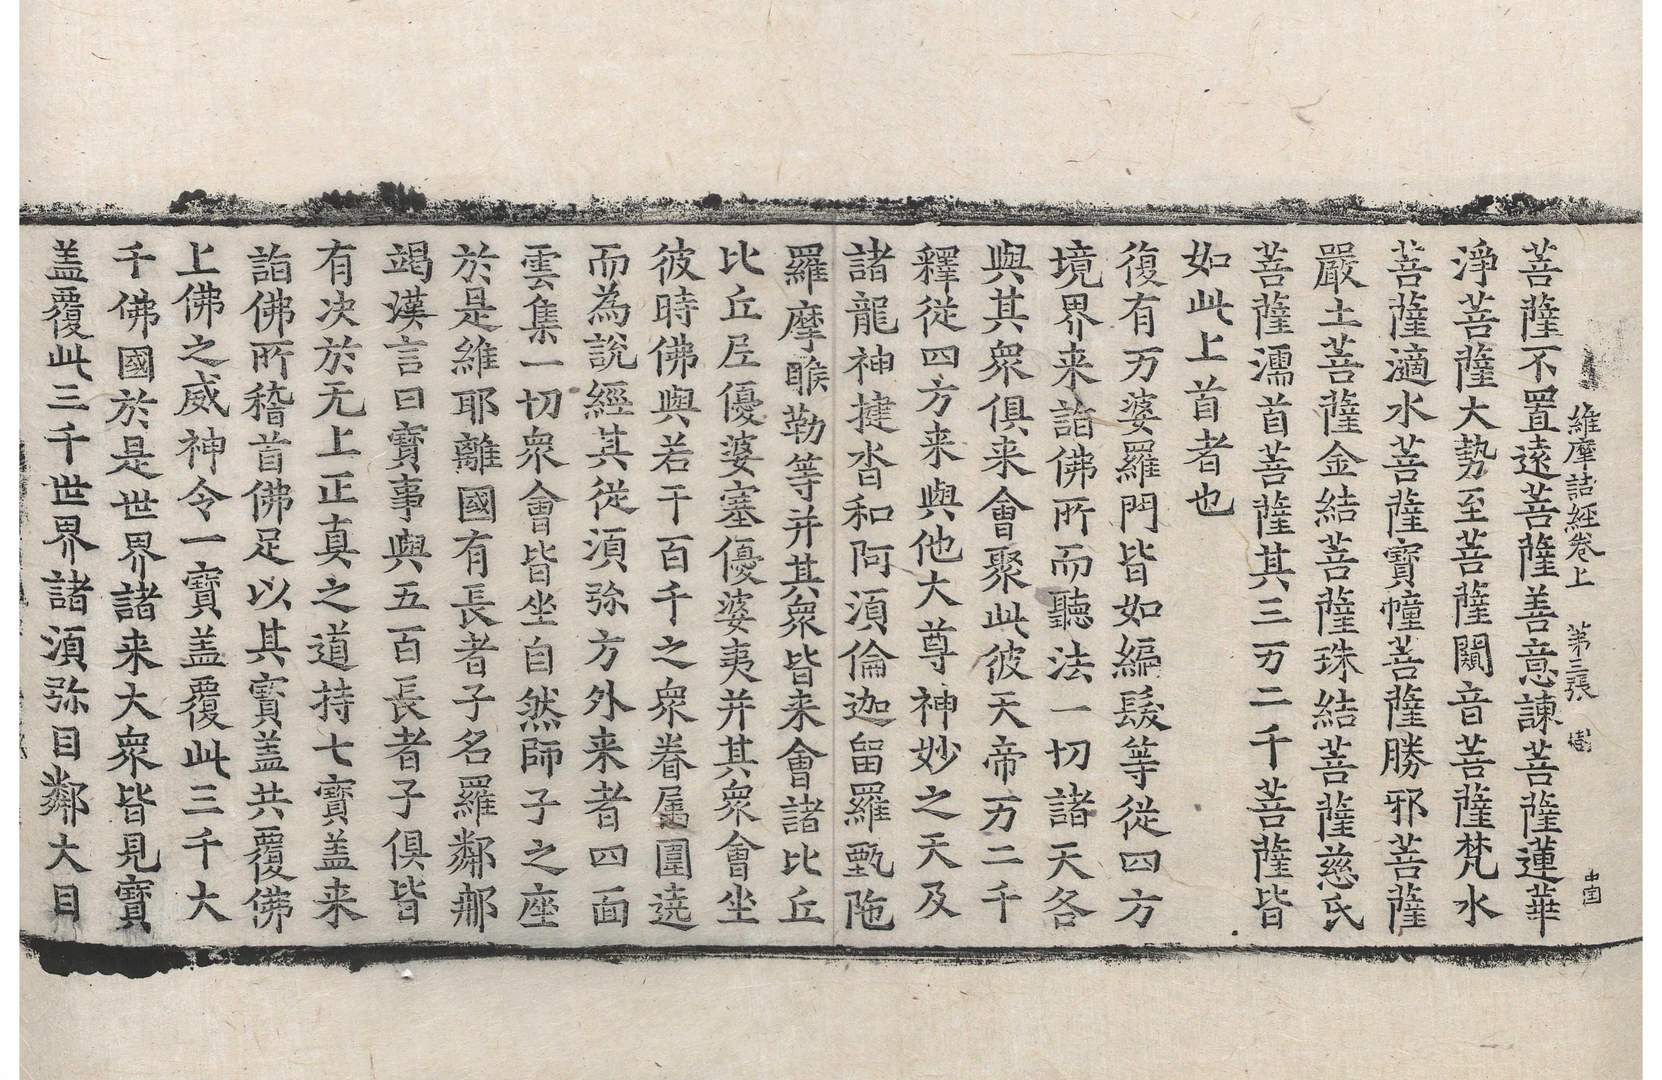 維摩詰經卷上　第三張　樹
菩薩不置遠菩薩善意諫菩薩蓮華
淨菩薩大勢至菩薩闚音菩薩梵水
菩薩適水菩薩寶幢菩薩勝邪菩薩
嚴土菩薩金結菩薩珠結菩薩慈氏
菩薩濡首菩薩其三万二千菩薩皆
如此上首者也
復有万婆羅門皆如編髮等從四方
境界来詣佛所而聽法一切諸天各
與其衆俱来會聚此彼天帝万二千
釋從四方来與他大尊神妙之天及
諸龍神揵沓和阿須倫迦留羅甄陁
羅摩睺勒等并其衆皆来會諸比丘
比丘尼優婆塞優婆夷并其衆會坐
彼時佛與若干百千之衆眷属圍遶
而為說經其從須弥方外来者四面
雲集一切衆會皆坐自然師子之座
於是維耶離國有長者子名羅鄰那
竭漢言曰寶事與五百長者子俱皆
有决於无上正真之道持七寶盖来
詣佛所稽首佛足以其寶盖共覆佛
上佛之威神令一寶盖覆此三千大
千佛國於是世界諸来大衆皆見寶
盖覆此三千世界諸須弥目鄰大目